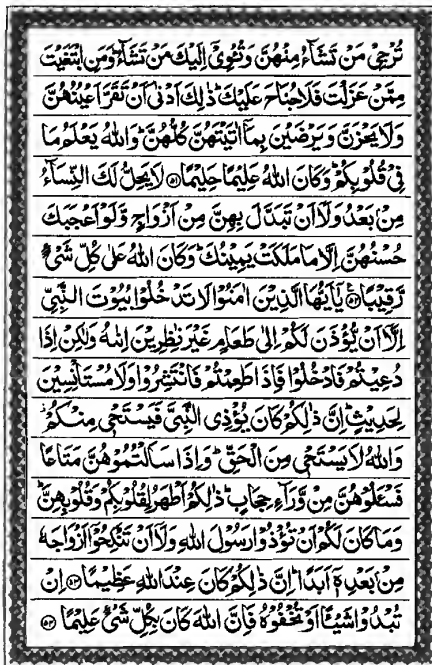 تُرْجِيْ مَنْ تَشَآءُ مِنْهُنَّ وَتُـْٔوِيْٓ اِلَيْكَ مَنْ تَشَآءُ ؕ وَمَنِ ابْتَغَيْتَ
مِمَّنْ عَزَلْتَ فَلَا جُنَاحَ عَلَيْكَ ؕ ذٰلِكَ اَدْنٰۤى اَنْ تَقَرَّ اَعْيُنُهُنَّ
وَلَا يَحْزَنَّ وَيَرْضَيْنَ بِمَاۤ اٰتَيْتَهُنَّ كُلُّهُنَّ ؕ وَاللّٰهُ يَعْلَمُ مَا
فِيْ قُلُوْبِكُمْ ؕ وَكَانَ اللّٰهُ عَلِيْمًا حَلِيْمًا ۝۵۱ لَا يَحِلُّ لَكَ النِّسَآءُ
مِنْۢ بَعْدُ وَلَاۤ اَنْ تَبَدَّلَ بِهِنَّ مِنْ اَزْوَاجٍ وَّلَوْ اَعْجَبَكَ
حُسْنُهُنَّ اِلَّا مَا مَلَكَتْ يَمِيْنُكَ ؕ وَكَانَ اللّٰهُ عَلٰى كُلِّ شَيْءٍ
رَّقِيْبًا ۝۵۲ يٰۤاَيُّهَا الَّذِيْنَ اٰمَنُوْا لَا تَدْخُلُوْا بُيُوْتَ النَّبِيِّ
اِلَّاۤ اَنْ يُّؤْذَنَ لَكُمْ اِلٰى طَعَامٍ غَيْرَ نٰظِرِيْنَ اِنٰىهُ وَلٰكِنْ اِذَا
دُعِيْتُمْ فَادْخُلُوْا فَاِذَا طَعِمْتُمْ فَانْتَشِرُوْا وَلَا مُسْتَاْنِسِيْنَ
لِحَدِيْثٍ ؕ اِنَّ ذٰلِكُمْ كَانَ يُؤْذِى النَّبِيَّ فَيَسْتَحْيٖ مِنْكُمْ ؗ
وَاللّٰهُ لَا يَسْتَحْيٖ مِنَ الْحَقِّ ؕ وَاِذَا سَاَلْتُمُوْهُنَّ مَتَاعًا
فَسْـَٔلُوْهُنَّ مِنْ وَّرَآءِ حِجَابٍ ؕ ذٰلِكُمْ اَطْهَرُ لِقُلُوْبِكُمْ وَقُلُوْبِهِنَّ ؕ
وَمَا كَانَ لَكُمْ اَنْ تُؤْذُوْا رَسُوْلَ اللّٰهِ وَلَاۤ اَنْ تَنْكِحُوْۤا اَزْوَاجَهٗ
مِنْۢ بَعْدِهٖۤ اَبَدًا ؕ اِنَّ ذٰلِكُمْ كَانَ عِنْدَ اللّٰهِ عَظِيْمًا ۝۵۳ اِنْ
تُبْدُوْا شَيْـًٔا اَوْ تُخْفُوْهُ فَاِنَّ اللّٰهَ كَانَ بِكُلِّ شَيْءٍ عَلِيْمًا ۝۵۴